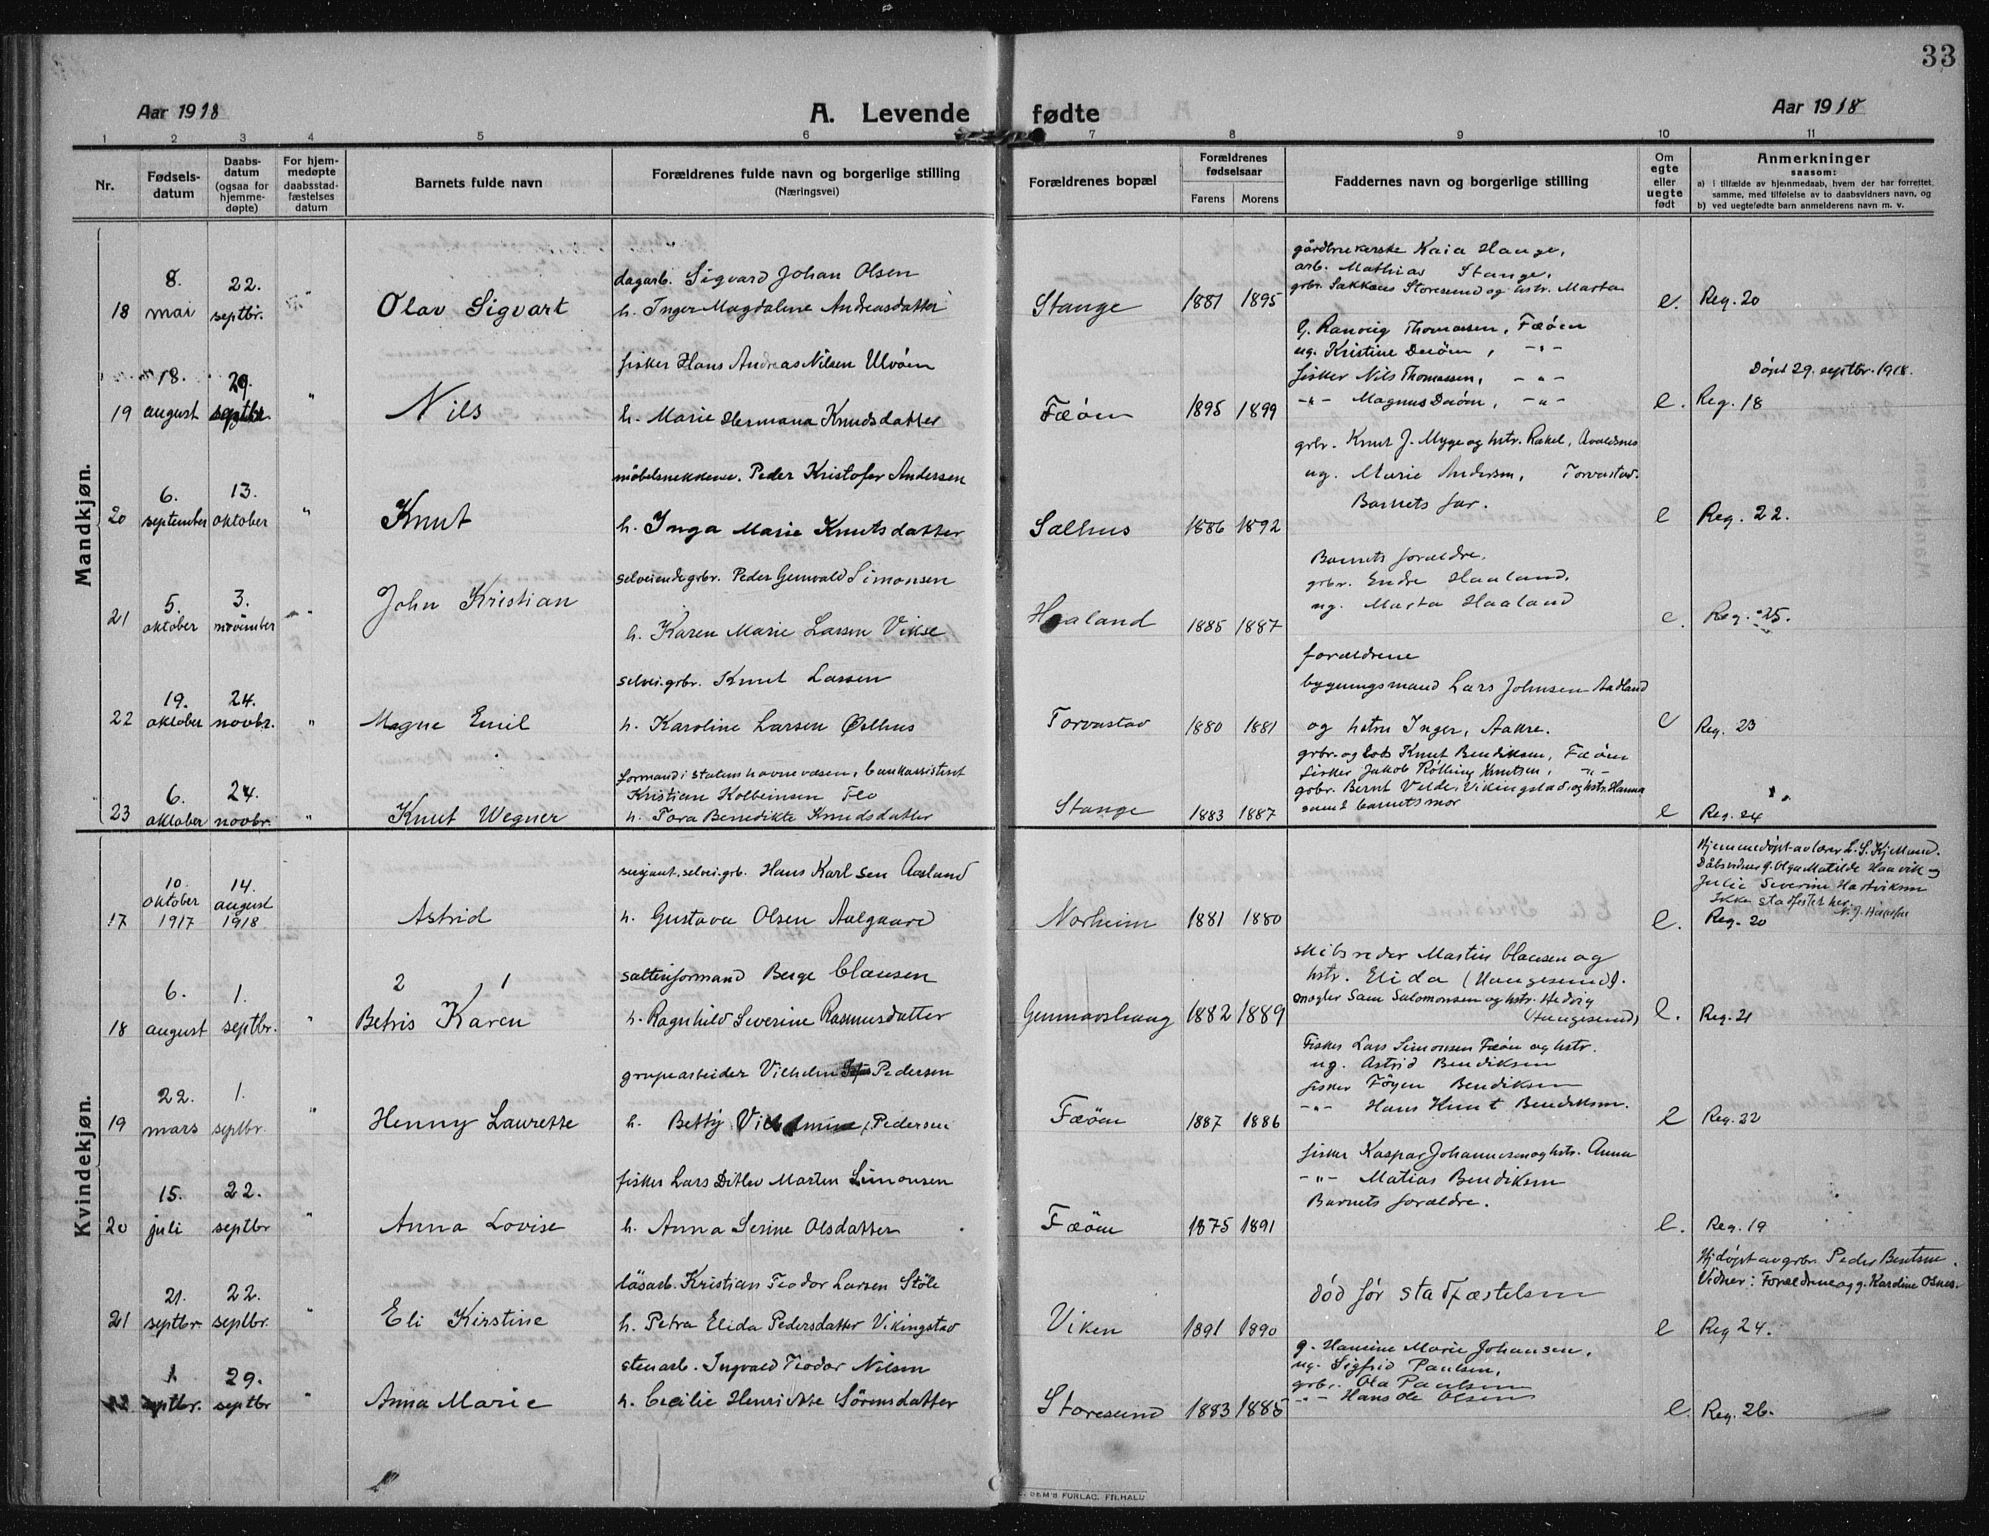 33
Aar 1918
A. Levende fødte
Aar 1918
1 2 3 4 5 6 7 8 9 10 11
Nr.
Fødsels-
datum
Daabs-
datum
(ogsaa for
hjemme-
døpte)
For hjem-
medøpte
daabsstad-
fæstelses
datum
Barnets fulde navn
Forældrenes fulde navn og borgerlige stilling
(Næringsvei)
Forældrenes bopæl
Forældrenes
fødselsaar
Farens Morens
Faddernes navn og borgerlige stilling
Om
egte
eller
uegte
født
Anmerkninger
saasom:
a) i tilfælde av hjemmedaab, hvem der har forrettet
samme, med tilføielse av to daabsvidners navn, og
b) ved uegtefødte barn anmelderens navn m. v.
Mandkjøn.
18
8.
mai
22.
septbr.
"
Olav Sigvart
dagarb. Sigvard Johan Olsen
h. Inger Magdalene Andreasdatter
Stange
1881 1895
gårdbrukerske Kaia Hauge,
arb. Mathias Stange,
grbr. Sakkeus Storesund og hstr. Marta
e.
Reg. 20
19
18.
august
29.
septbr
"
Nils
fisker Hans Andreas Nilsen Ulvöen
h. Marie Hermana Knudsdatter
Fæöen
1895 1899
G. Ranveig Thomassen, Fæöen
ug. Kristine Deröen, -"-
fisker Nils Thomassen, -"-
-"- Magnus Deröen, -"-
e.
Døpt 29. septbr. 1918.
Reg. 18
20
6.
september
13.
oktober
"
Knut
möbelsnekkere. Peder Kristofer Andersen
h. Inga Marie Knutsdatter
Salhus
1886 1892
grbr. Knut J. Myge og hstr. Rakel, Avaldsnes
ug. Marie Andersen, Torvastad.
Barnets far.
e
Reg. 22.
21
5.
oktober
3.
november
"
John Kristian
selveiende grbr. Peder Gunvald Simonsen
h. Karen Marie Larsen Vikse
Haaland
1885 1887
Barnets foraldre.
grbr. Endre Haaland.
ug. Marta Haaland
e.
Reg. 25.
22
19.
oktober
24.
novbr.
"
Magne Emil
selvei. grbr. Knut Larsen
h. Karoline Larsen Østhus
Torvastav
1880 1881
foraldrene
bygningsmand Lars Johnsen Aadland
og hstru Inger, Aakre.
e
Reg. 23
23
6.
oktober
24.
novbr.
"
Knut Wegner
formand i statens havnevæsen, bankassistent
Kristian Kolbeinsen Flo
h. Tora Benedikte Knudsdatter
Stange
1883 1887
grbr. og lods Knut Bendiksen, Fæöen
fisker Jakob Røthing Knutsen, -"-
grbr. Bernt Velde, Vikingstad, og hstr. Hanna
samt barnets mor
e
Reg. 24
Kvindekjøn.
17
10.
oktober
1917
14.
august
1918
Astrid
sergant, selvei. grb. Hans Karlsen Aasland
h. Gustava Olsen Aalgaard
Norheim
1881 1880
e.
Hjemmedøpt av lærer L. S. Kjelland.
Dåbsvidner g. Olga Matilde Haavik og
Julie Severine Hartviksen
Ikke stadfestet her.
Reg. 20
18
6.
august
1.
septbr.
"
2 1
Betris Karen
salteriformand Berge Clausen
h. Ragnhild Severine Rasmusdatter
Gunnarshaug
1882 1889
skibsreder Martin Clausen og
hstr. Elida (Haugesund).
mægler Sam Salomonsen og hstr. Hedvig
(Haugesund)
e.
Reg. 21
19
22.
mars
1.
septbr.
"
Henny Laurette
grupearbeider Vilhelm Pedersen
h. Betty Vilhelmine Pedersen
Fæöen
1887 1886
Fisker Lars Simonsen Fæöen og hstr.
ug. Astrid Bendiksen
fisker Föyen Bendiksen
-"- Hans Knut Bendiksen.
e
Reg. 22
20
15.
juli
22.
septbr
"
Anna Lovise
fisker Lars Ditlev Morten Simonsen
h. Anna Serine Olsdatter
Fæöen
1875 1891
fisker Kaspar Johannesen og hstr. Anna
-"- Matias Bendiksen
Barnets foraldre.
e.
Reg. 19
21
21.
septbr.
22.
septbr.
"
Eli Kirstine
løsarb. Kristian Teodor Larsen Støle
h. Petra Elida Pedersdatter Vikingstad
Viken
1891 1890
død før stadfæstelsen
e
Hj.døpt av grbr. Peder Bentsen.
Vidner: Foraldrene og g. Karoline Osnes.
Reg 24.
22
1.
septbr.
29.
septbr
"
Anna Marie
stenarb. Ingvald Teodor Nilsen
h. Cecilie Henrikke Sörensdatter
Storesund
1883 1885
g. Hansine Marie Johansen,
ug. Sigfrid Paulsen,
grbr. Ola Paulsen
-"- Hans de Olsen
e.
Reg. 26.
FORLAG. FR.HALD